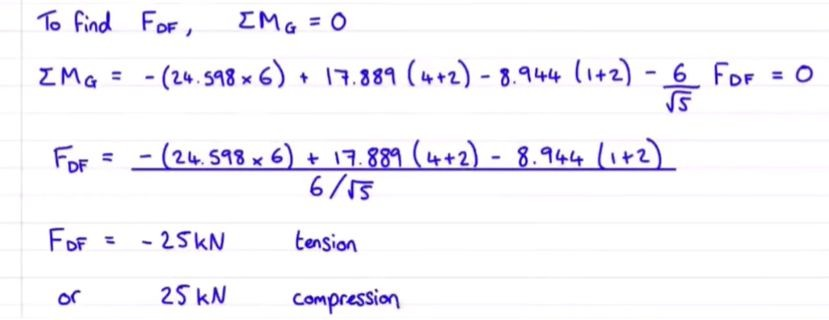 To find F_DF, ΣM_G = 0
ΣM_G = - (24.598 × 6) + 17.889 (4+2) - 8.944 (1+2) - 6/√5 F_DF = 0
F_DF = - (24.598 × 6) + 17.889 (4+2) - 8.944 (1+2)
6/√5
F_DF = - 25 kN tension
or 25 kN compression